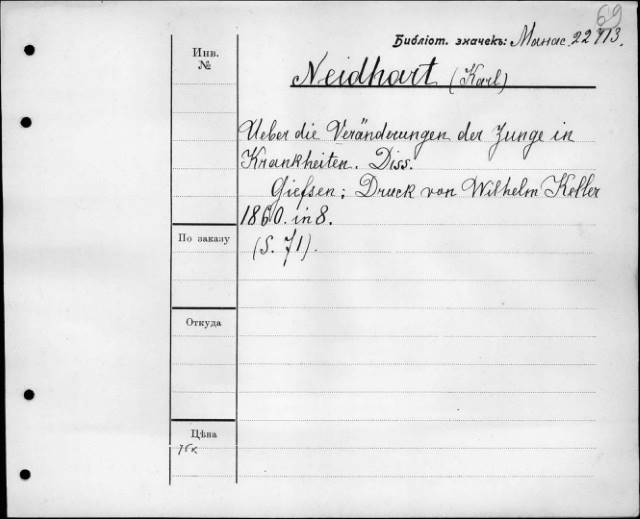 69
Библіот. значекъ: Манас. 22713.
Инв.
№
Neidhart (Karl)
Ueber die Veränderungen der Zunge in
Krankheiten. Diss.
Giefsen; Druck von Wilhelm Keller
1860. in 8.
По заказу
(S. 71).
Откуда
Цѣна
75к